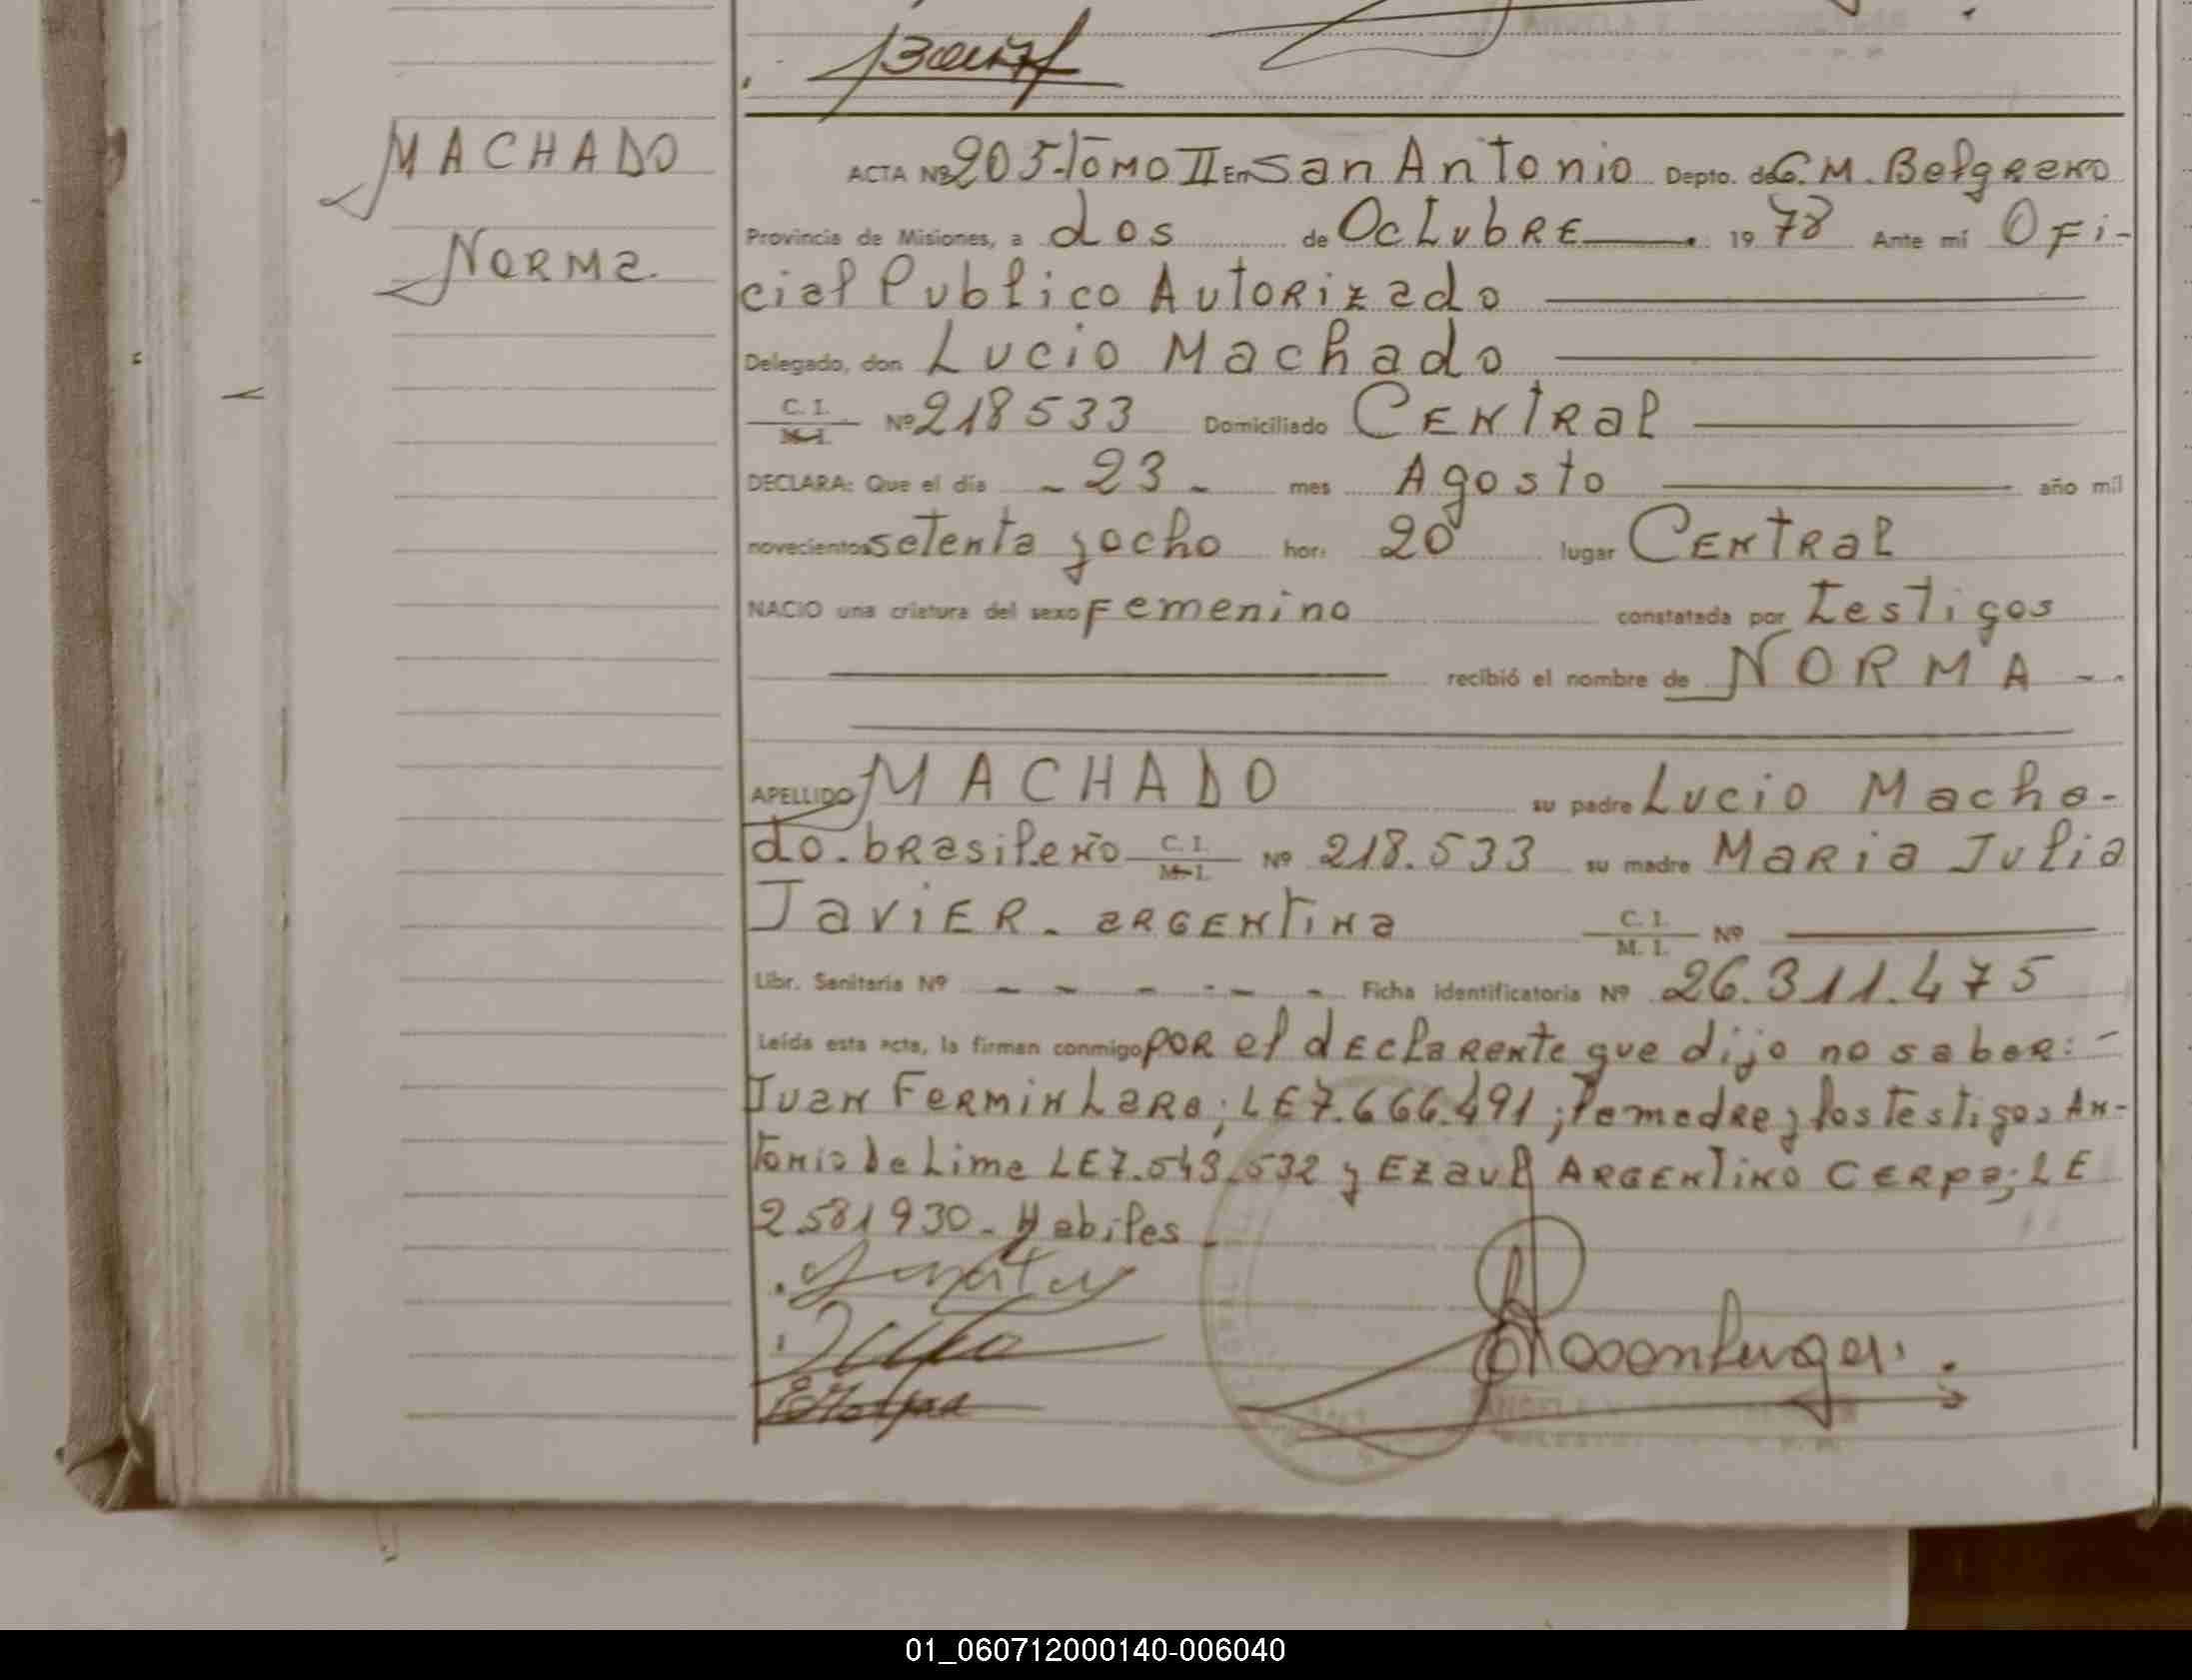 MACHADO
NORMa.
ACTA Nº 205-TOMO II En San Antonio Depto. de G.M. Belgrano
Provincia de Misiones, a dos de OcTubRE 1978 Ante mi Ofi-
cial Publico Autorizado
Delegado, don Lucio Machado
C. I.
M. I. Nº 218533 Domiciliado CENTRal
DECLARA: Que el día - 23 - mes Agosto año mil
novecientos setenta y ocho hor: 20 lugar CENTRal
NACIO una criatura del sexo Femenino constatada por Testigos
recibió el nombre de NORMA - -
APELLIDO MACHADO su padre Lucio Macha-
do. brasileño C. I. M. I. Nº 218.533 su madre Maria Julia
JaviER. aRGENTiNa C. I. M. I. Nº
Libr. Sanitaria Nº - - - - - - Ficha identificatoria Nº 26.311.475
Leída esta acta, la firman conmigo por el declarante que dijo no saber: -
Juan Fermin Lara; LE 7.666.491; la madre y los Testigos An-
tonio De Lima LE 7.549.532 y Ezaul ARGENTiNO CERpa; LE
2581930 - Habiles -
01_060712000140-006040